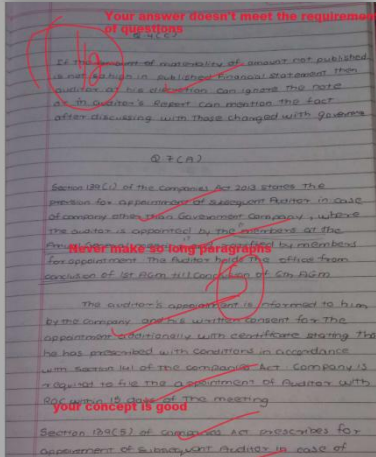 Your answer doesn't meet the requiremen
of questions
If the amount of materiality of amount not published
is not in published financial statement then
auditor at his discretion can ignore the note
or in auditor's Report can mention the fact
after discussing with those charged with governce
Q 7 (A)
Section 139(1) of the Companies Act 2013 states the
provision for appointment of subsequent Auditor in case
of company other than Government company, where
the auditor is appointed by the members at the
by members
Never make so long paragraphs
for appointment. The Auditor holds the office from
conclusion of 1st AGM till conclusion of 6th AGM
5
The auditor's appointment is informed to him
by the company and his written consent for the
appointment additionally with certificate stating tha
he has prescribed with conditions in accordance
with section 141 of the companies Act. Company is
required to file the appointment of Auditor with
ROC within 15 days of the meeting
your concept is good
Section 139(5) of companies Act prescribes for
appointment of subsequent Auditor in case of